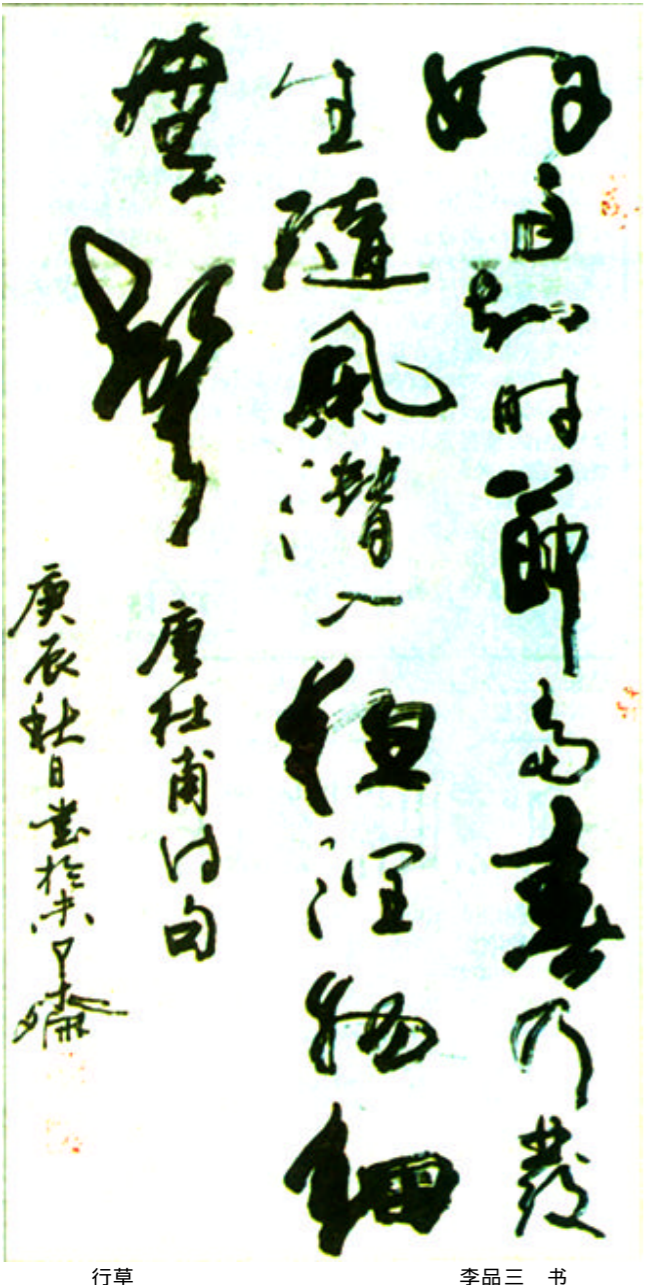 好雨知时節当春乃發
生隨風潛入润物細
無聲
唐杜甫诗句
庚辰秋日書於未齋
行草 李品三 书